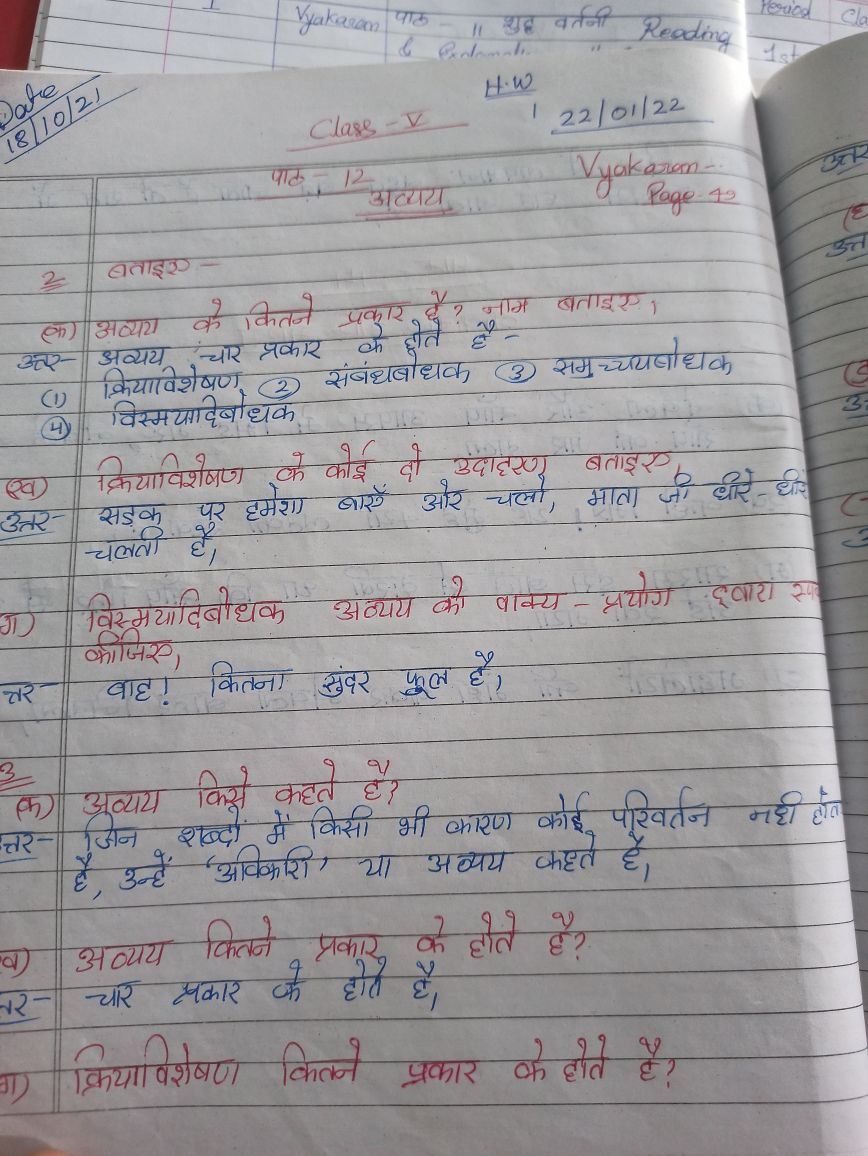 1 Vyakaran पाठ - " शुद्ध वर्तनी Reading Period
" 1st
Date
18/10/21
H.W
Class - V
22/01/22
पाठ - 12 Vyakaran -
अव्यय Page - 49
2 बताइए -
(क) अव्यय के कितने प्रकार है? नाम बताइए,
उत्तर- अव्यय चार प्रकार के होते है -
(1) क्रियाविशेषण (2) संबंधबोधक (3) समुच्चयबोधक
(4) विस्मयादिबोधक
(ख) क्रियाविशेषण के कोई दो उदाहरण बताइए,
उत्तर- सड़क पर हमेशा बाएँ ओर चलो, माता जी धीरे-धीरे
चलती है,
ग) विस्मयादिबोधक अव्यय को वाक्य - प्रयोग द्वारा
कीजिए,
त्तर- वाह! कितना सुंदर फूल है,
3
(क) अव्यय किसे कहते है?
त्तर- जिन शब्दों में किसी भी कारण कोई परिवर्तन नही होता
है, उन्हें 'अविकारी' या अव्यय कहते है,
ख) अव्यय कितने प्रकार के होते है?
त्तर- चार प्रकार के होते है,
ग) क्रियाविशेषण कितने प्रकार के होते है?
उत्तर